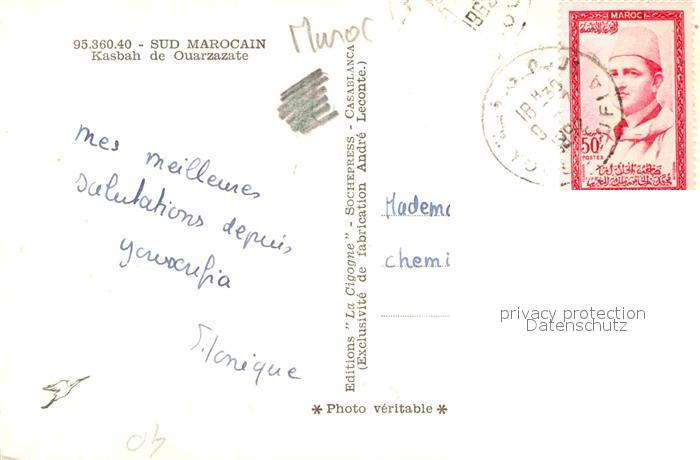 95.360.40 - SUD MAROCAIN
Kasbah de Ouarzazate
Maroc
mes meilleures
salutations depuis
youxoufia
Monique
Editions "La Cigogne" - SOCHEPRESS - CASABLANCA
(Exclusivité de fabrication André Leconte.)
* Photo véritable *
MAROC
50F
POSTES
UFIA
Madem
chemi
privacy protection
Datenschutz